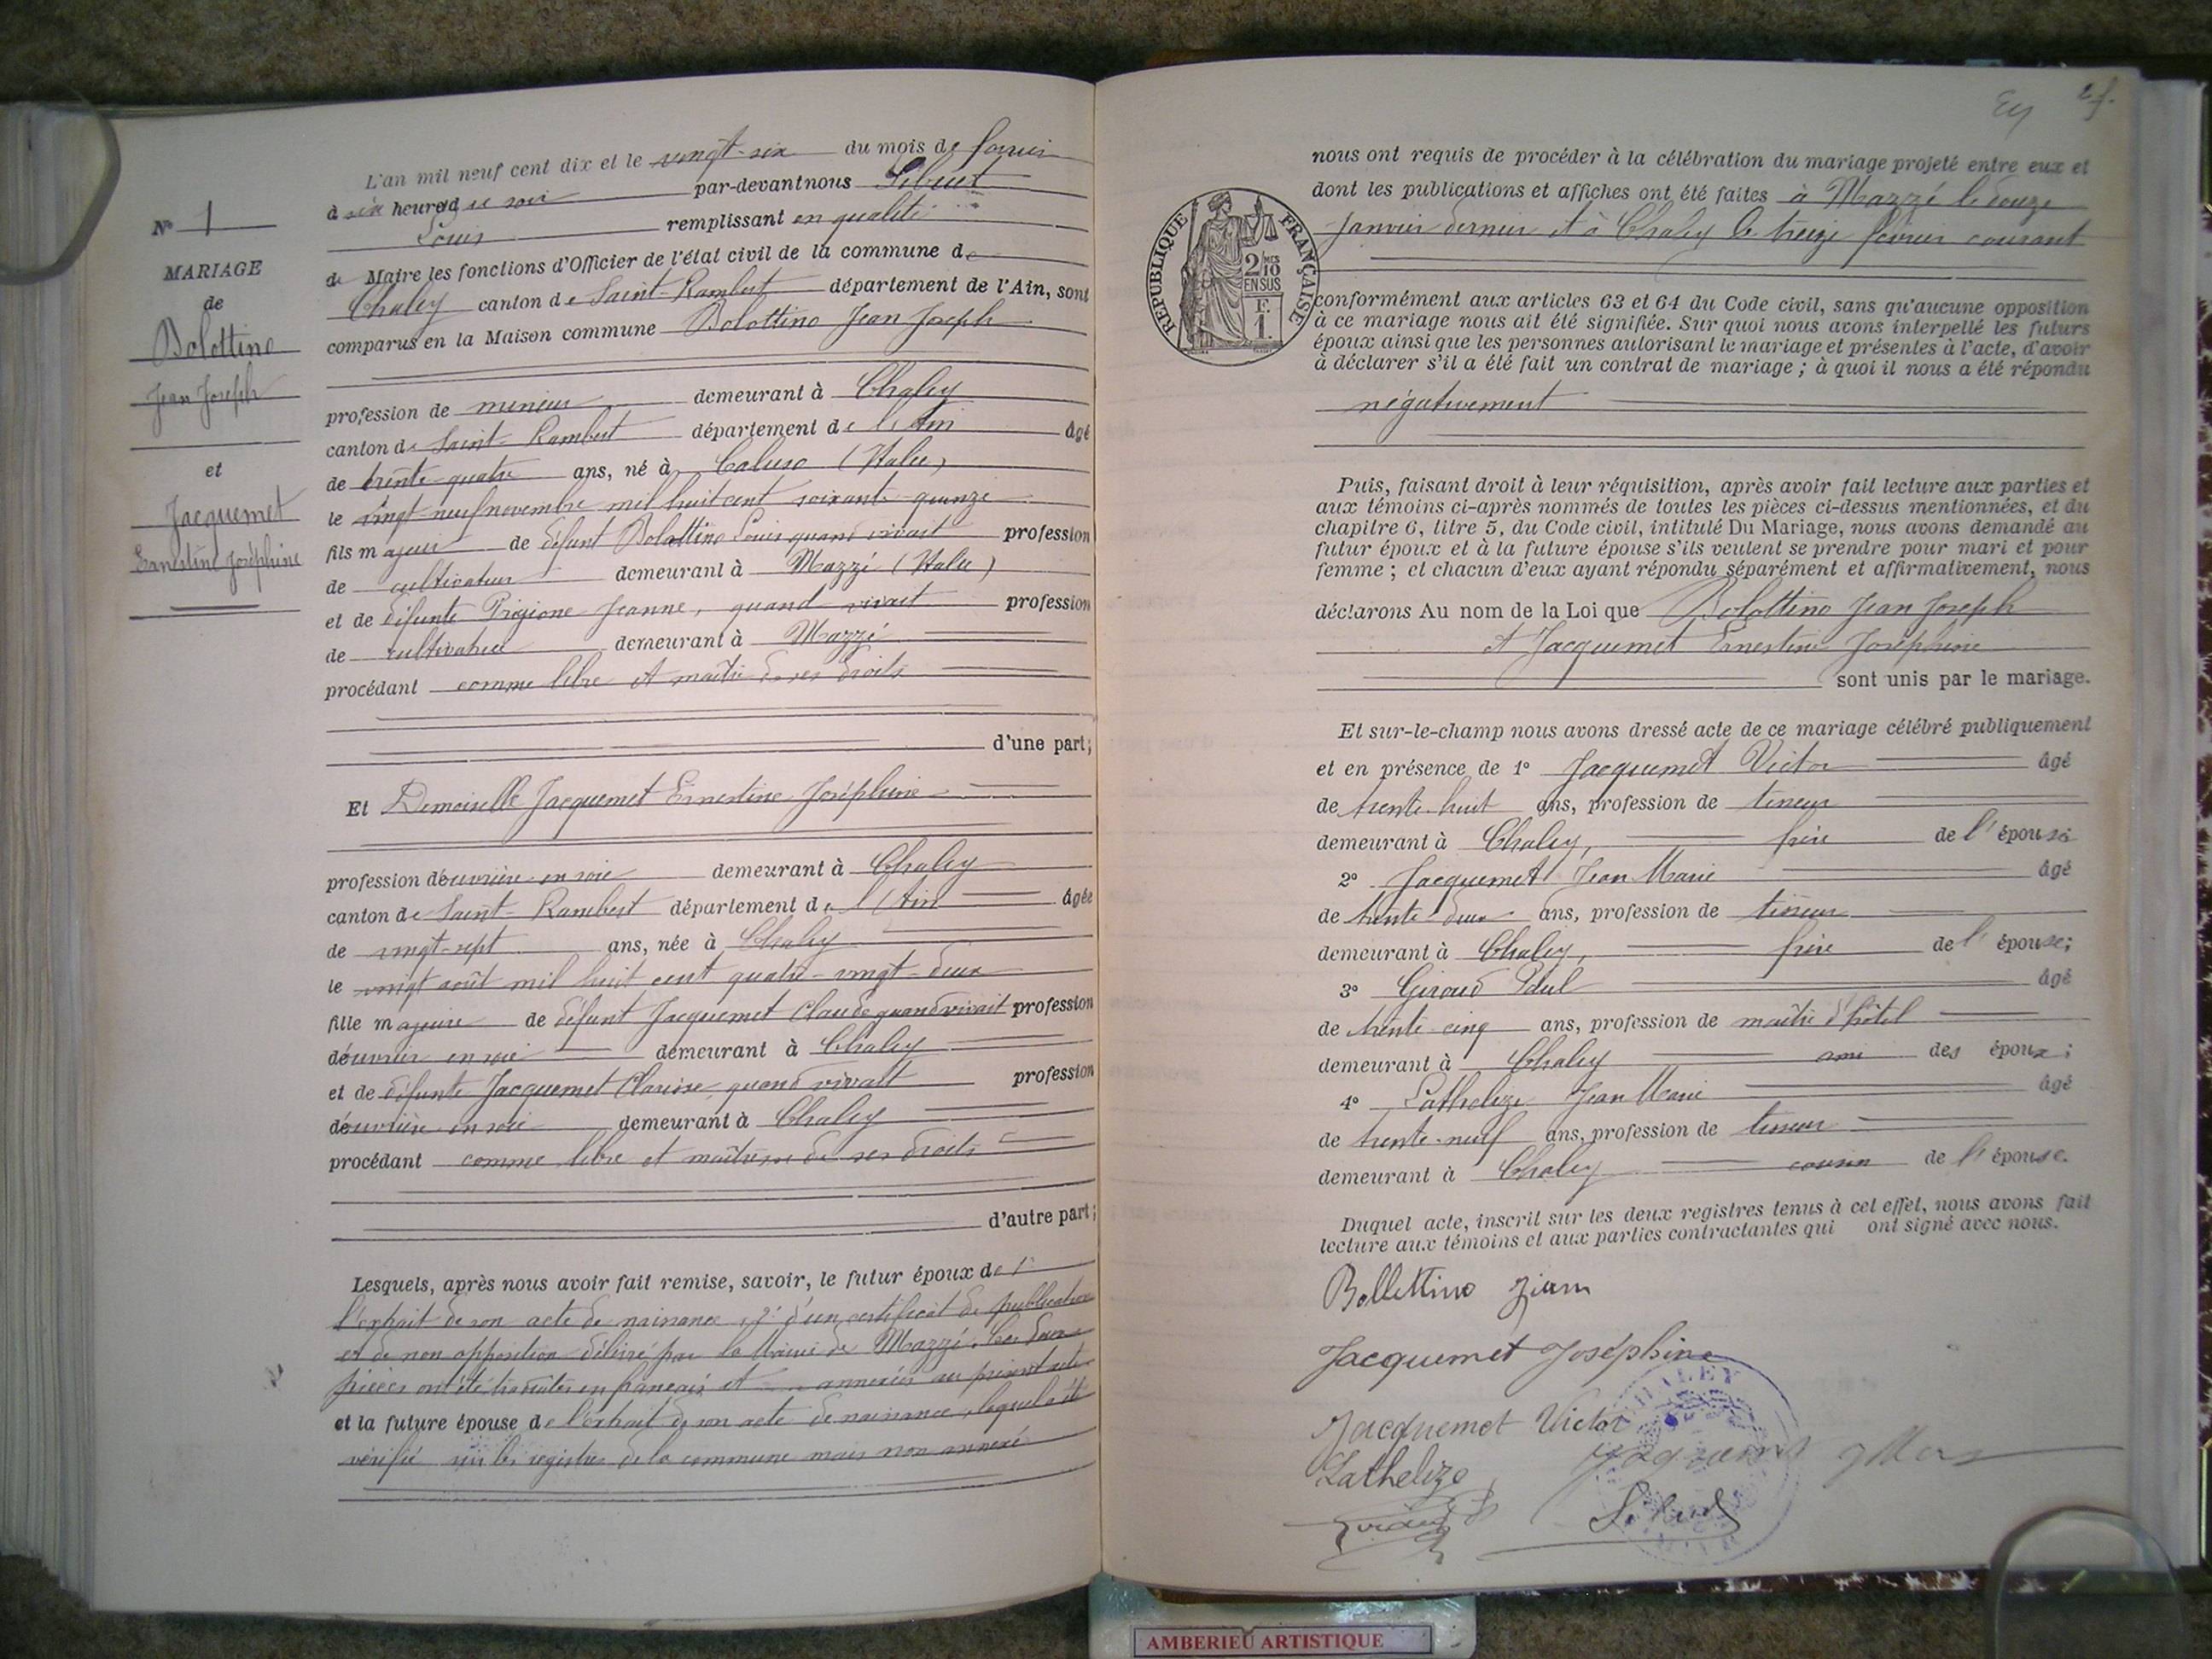 L'an mil neuf cent dix et le vingt-six du mois de février
à six heures du soir par-devant nous
Louis remplissant en qualité
de Maire les fonctions d'Officier de l'état civil de la commune de
Chaley canton de Saint-Rambert département de l'Ain, sont
comparus en la Maison commune Bolottino Jean Joseph
profession de mineur demeurant à Chaley
canton de Saint-Rambert département de l'Ain âgé
de trente-quatre ans, né à Caluso (Italie)
le vingt neuf novembre mil huit cent soixante-quinze
fils majeur de défunt Bolottino Louis quand vivait profession
de cultivateur demeurant à Mazzé (Italie)
et de défunte Prigione Jeanne, quand vivait profession
de cultivatrice demeurant à Mazzé
procédant comme libre et maître de ses droits
d'une part;
Et Demoiselle Jacquemet Ernestine Joséphine
profession d'ouvrière en soie demeurant à Chaley
canton de Saint-Rambert département de l'Ain âgée
de vingt-sept ans, née à Chaley
le vingt août mil huit cent quatre-vingt-deux
fille majeure de défunt Jacquemet Claude quand vivait profession
d'ouvrier en soie demeurant à Chaley
et de défunte Jacquemet Clarisse, quand vivait profession
d'ouvrière en soie demeurant à Chaley
procédant comme libre et maîtresse de ses droits
d'autre part;
Lesquels, après nous avoir fait remise, savoir, le futur époux de 1°
l'extrait de son acte de naissance, 2° d'un certificat de publication
et de non opposition délivré par la Mairie de Mazzé. Ces deux
pièces ont été traduites en français et annexées au présent acte
et la future épouse de l'extrait de son acte de naissance, lequel a été
vérifié sur les registres de la commune mais non annexé
N° 1
MARIAGE
de
Bolottino
Jean Joseph
et
Jacquemet
Ernestine Joséphine
2 f.
nous ont requis de procéder à la célébration du mariage projeté entre eux et
dont les publications et affiches ont été faites à Mazzé le douze
Janvier dernier et à Chaley le treize février courant
RÉPUBLIQUE FRANÇAISE
2/10 MES
EN SUS
F.
1.
conformément aux articles 63 et 64 du Code civil, sans qu'aucune opposition
à ce mariage nous ait été signifiée. Sur quoi nous avons interpellé les futurs
époux ainsi que les personnes autorisant le mariage et présentes à l'acte, d'avoir
à déclarer s'il a été fait un contrat de mariage ; à quoi il nous a été répondu
négativement
Puis, faisant droit à leur réquisition, après avoir fait lecture aux parties et
aux témoins ci-après nommés de toutes les pièces ci-dessus mentionnées, et du
chapitre 6, titre 5, du Code civil, intitulé Du Mariage, nous avons demandé au
futur époux et à la future épouse s'ils veulent se prendre pour mari et pour
femme ; et chacun d'eux ayant répondu séparément et affirmativement, nous
déclarons Au nom de la Loi que Bolottino Jean Joseph
et Jacquemet Ernestine Joséphine
sont unis par le mariage.
Et sur-le-champ nous avons dressé acte de ce mariage célébré publiquement
et en présence de 1° Jacquemet Victor âgé
de trente-huit ans, profession de tisseur
demeurant à Chaley, frère de l'épouse
2° Jacquemet Jean Marie âgé
de trente-deux ans, profession de tisseur
demeurant à Chaley, frère de l'épouse;
3° Giraud Paul âgé
de trente-cinq ans, profession de maître d'hôtel
demeurant à Chaley ami des époux;
4° Lathelize Jean Marie âgé
de trente-neuf ans, profession de tisseur
demeurant à Chaley cousin de l'épouse.
Duquel acte, inscrit sur les deux registres tenus à cet effet, nous avons fait
lecture aux témoins et aux parties contractantes qui ont signé avec nous.
Bollettino
Jacquemet Joséphine
Jacquemet Victor
Lathelize
CHALEY
AMBERIEU ARTISTIQUE